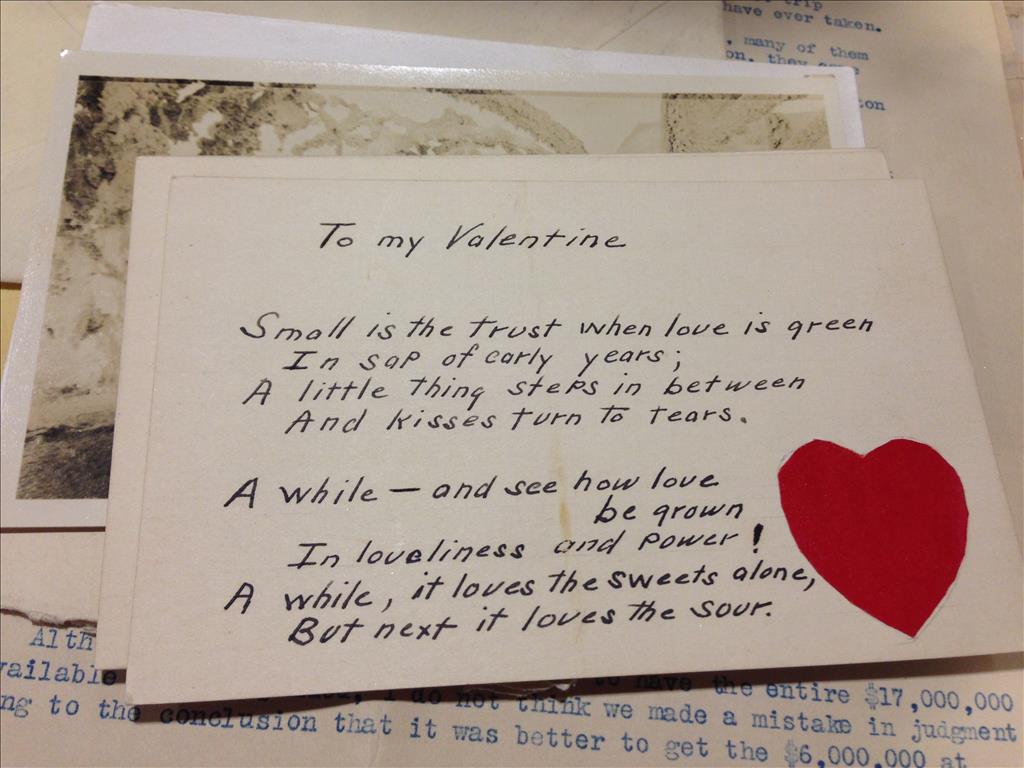 trip
have ever taken.
, many of them
on, they
To my Valentine
Small is the trust when love is green
In sap of early years;
A little thing steps in between
And kisses turn to tears.
A while — and see how love
be grown
In loveliness and power!
A while, it loves the sweets alone,
But next it loves the sour.
Alth
vailable
, I do not think we made a mistake in judgment
to have the entire $17,000,000
ng to the conclusion that it was better to get the $6,000,000 at